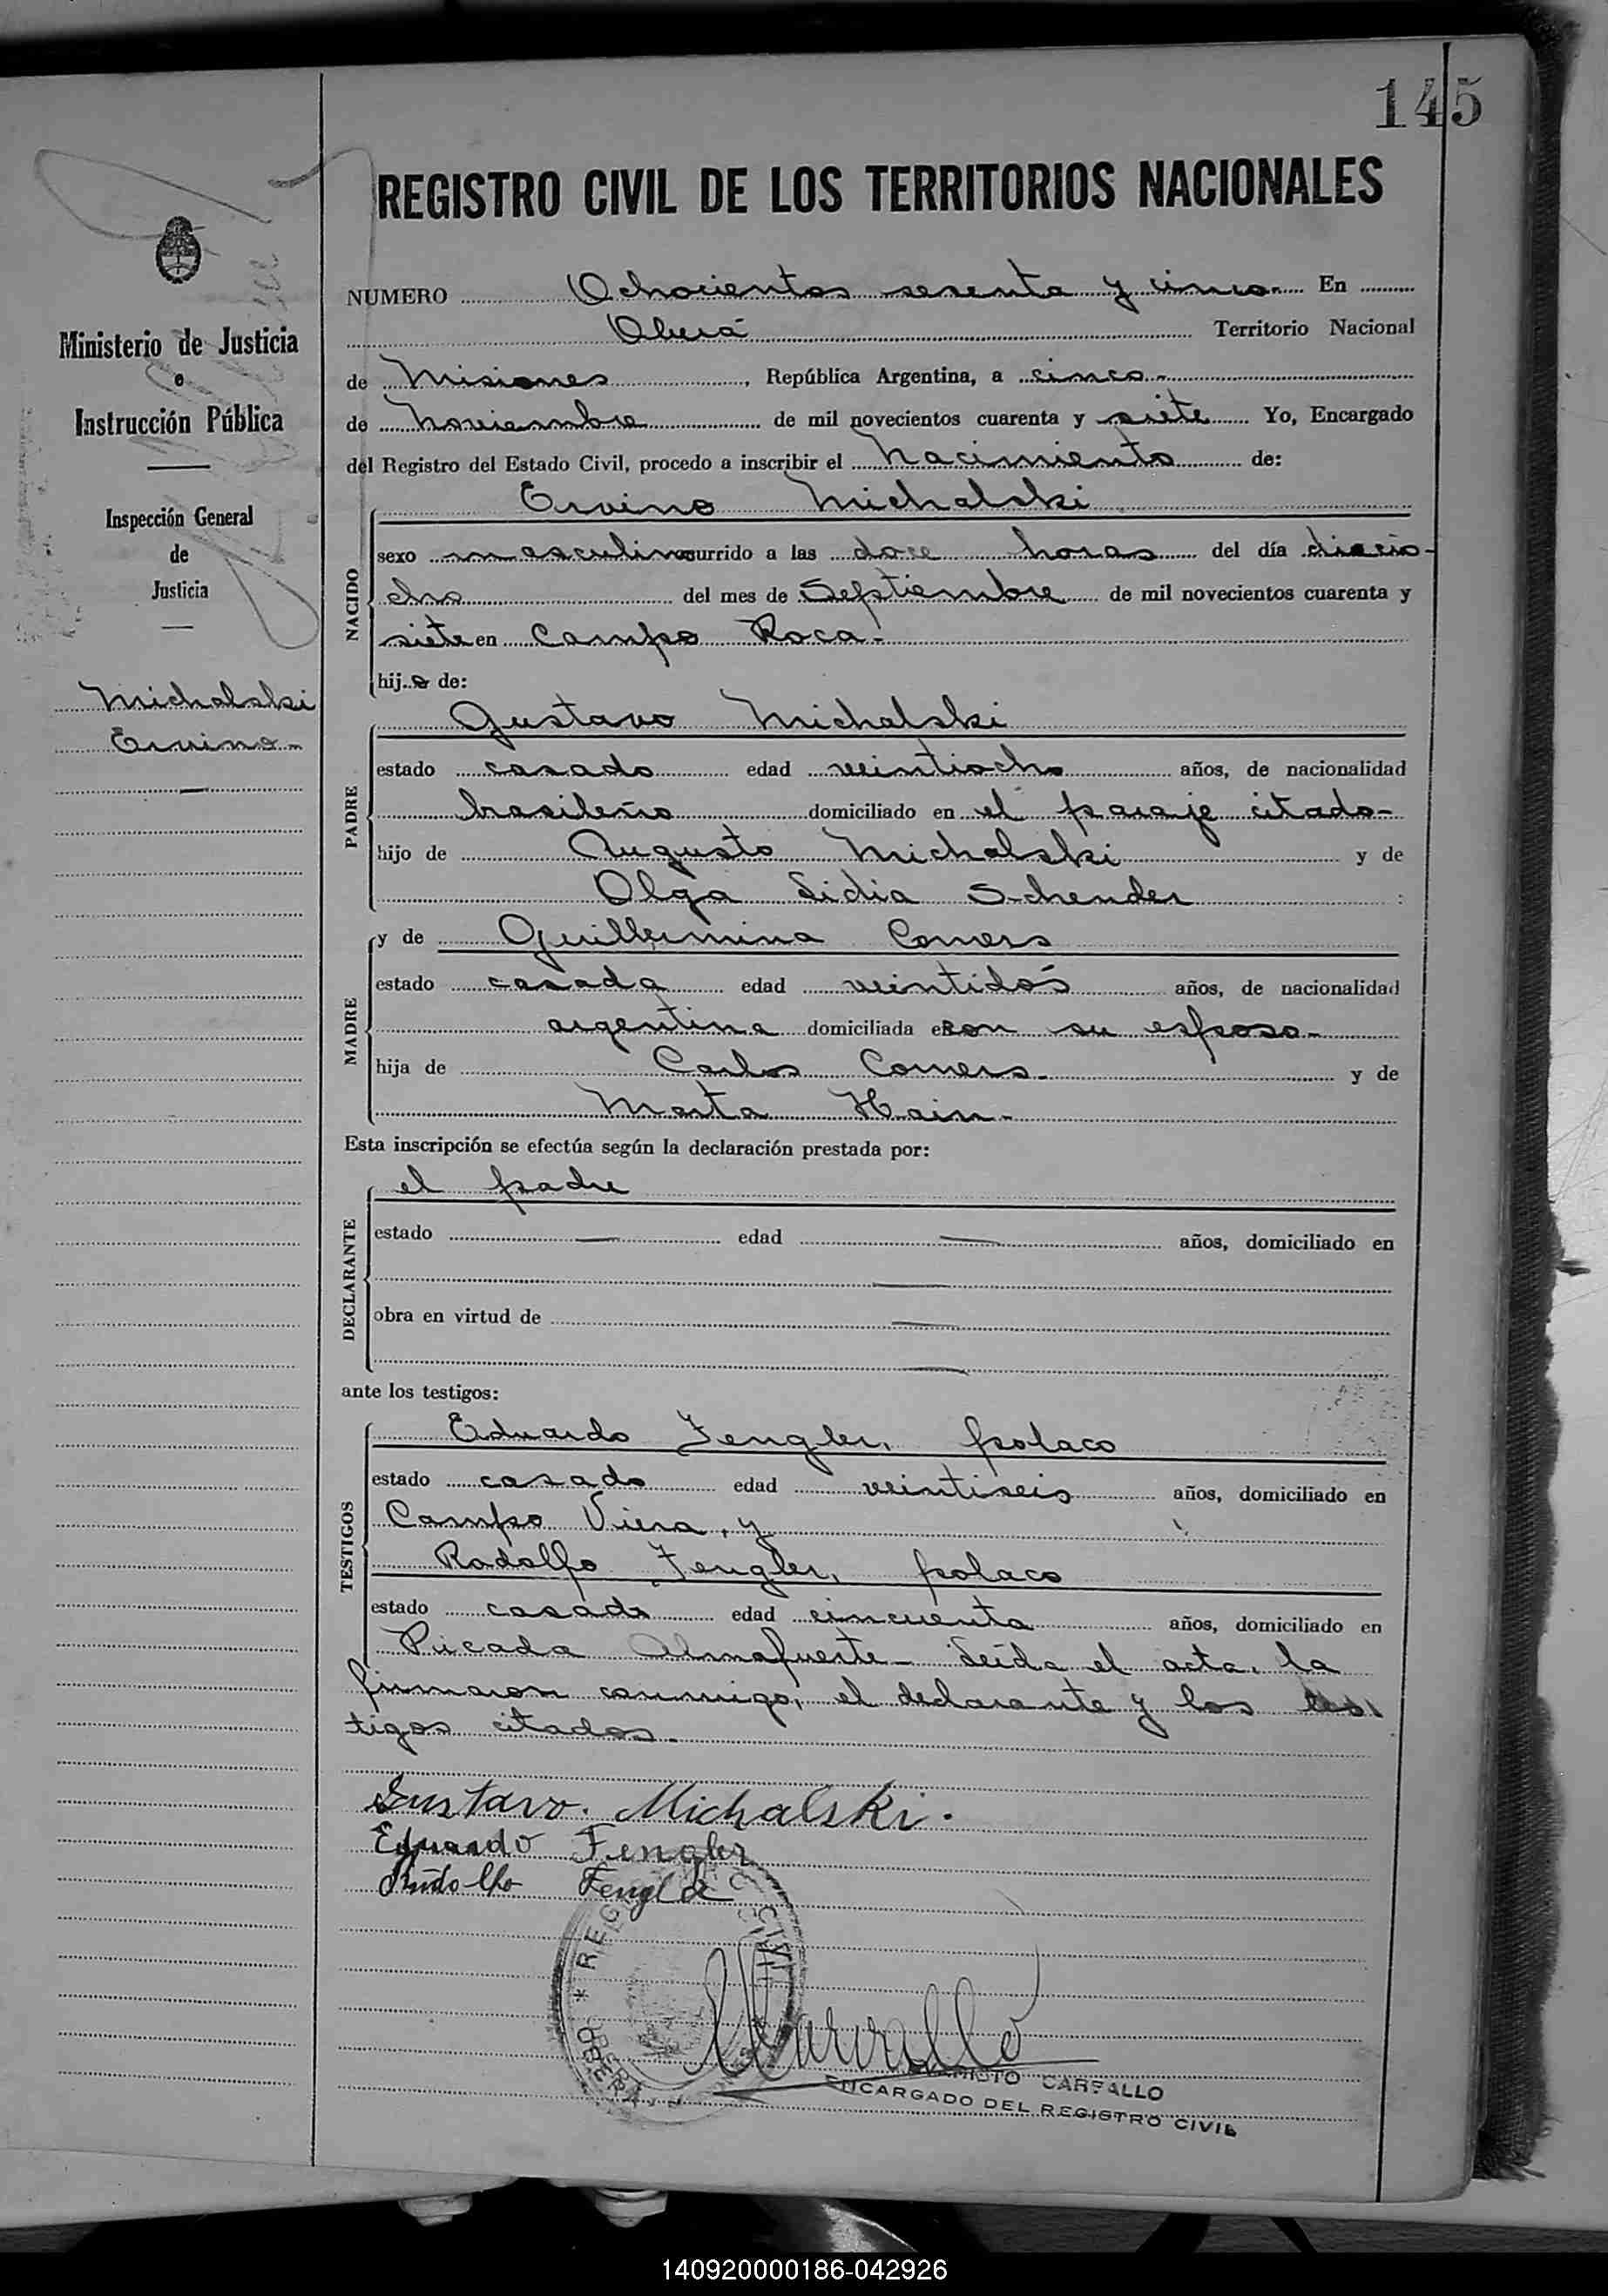 145
REGISTRO CIVIL DE LOS TERRITORIOS NACIONALES
Ministerio de Justicia
e
Instrucción Pública
Inspección General
de
Justicia
Michalski
Ervino-
NUMERO Ochocientos sesenta y cinco- En
Oberá Territorio Nacional
de Misiones, República Argentina, a cinco-
de noviembre de mil novecientos cuarenta y siete Yo, Encargado
del Registro del Estado Civil, procedo a inscribir el nacimiento de:
NACIDO
Ervino Michalski
sexo masculino ocurrido a las doce horas del día diecio-
cho del mes de Septiembre de mil novecientos cuarenta y
siete en Campo Roca-
hijo de:
PADRE
Gustavo Michalski
estado casado edad veintiocho años, de nacionalidad
brasileño domiciliado en el paraje citado-
hijo de Augusto Michalski y de
Olga Lidia Schender
MADRE
y de Guillermina Comers
estado casada edad veintidós años, de nacionalidad
argentina domiciliada en con su esposo-
hija de Carlos Comers- y de
Marta Hain-
Esta inscripción se efectúa según la declaración prestada por:
DECLARANTE
el padre
estado — edad — años, domiciliado en
—
obra en virtud de —
—
ante los testigos:
TESTIGOS
Eduardo Fengler, polaco
estado casado edad veintiseis años, domiciliado en
Campo Viera, y
Rodolfo Fengler, polaco
estado casado edad cincuenta años, domiciliado en
Picada Almafuerte- Leída el acta, la
firmaron conmigo, el declarante y los tes
tigos citados-
Gustavo. Michalski.
Eduardo Fengler
Rudolfo Fengler
* REG CIVIL
OBERA
CARVALLO
ENCARGADO DEL REGISTRO CIVIL
140920000186-042926